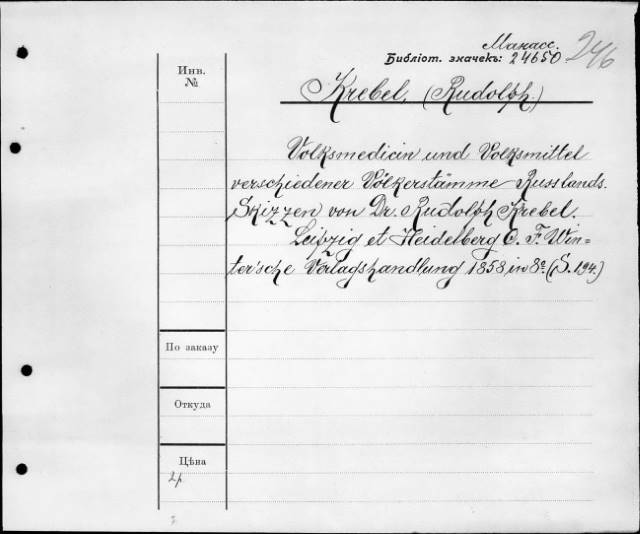 Манасс.
Библіот. значекъ: 24650 246
Инв.
№
Krebel, (Rudolph.)
Volksmedicin und Volksmittel
verschiedener Völkerstämme Russlands.
Skizzen von Dr. Rudolph Krebel.
Leipzig et Heidelberg C. F. Win=
ter'sche Verlagshandlung 1858, in 8º. (S. 194.)
По заказу
Откуда
Цѣна
2р